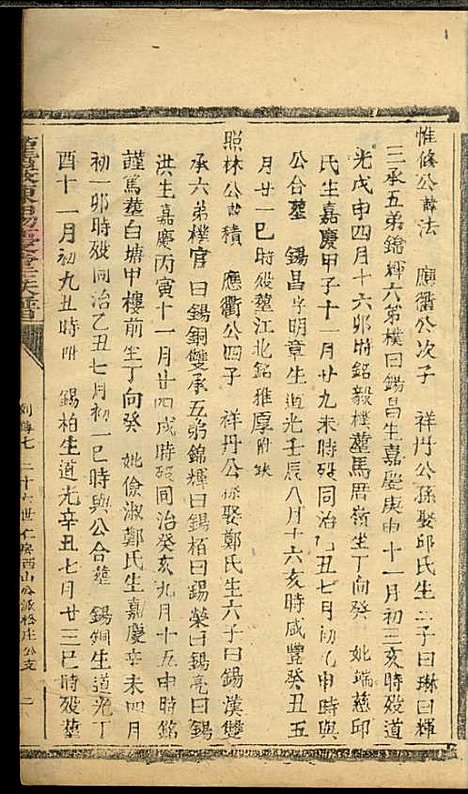 惟修公諱法 應衢公次子 祥丹公孫娶邱氏生三子曰琳曰輝
三承五弟錦輝六弟樸曰錫昌生嘉慶庚申十一月初三亥時歿道
光戊申四月十六卯時銘毅樸塟馬厝嶺坐丁向癸 妣端慈邱
氏生嘉慶甲子十一月廿九未時歿同治乙丑七月初九申時與
公合塟 錫昌字明章生道光壬辰八月十六亥時咸豐癸丑五
月廿一巳時歿塟江北銘雅厚附缺
照林公諱積 應衢公四子 祥丹公孫娶鄭氏生六子曰錫漢雙
承六弟樸官曰錫銅雙承五弟錦輝曰錫栢曰錫榮曰錫亮曰錫
洪生嘉慶丙寅十一月廿四戌時歿同治癸亥九月十五申時銘
謹篤塟白塘甲樓前坐丁向癸 妣儉淑鄭氏生嘉慶辛未四月
初一卯時歿同治乙丑七月初一巳時與公合塟 錫銅生道光丁
酉十一月初九丑時附 錫柏生道光辛丑七月廿三巳時歿塟
列傳七 二十六世仁房西山公派格庄公支 二